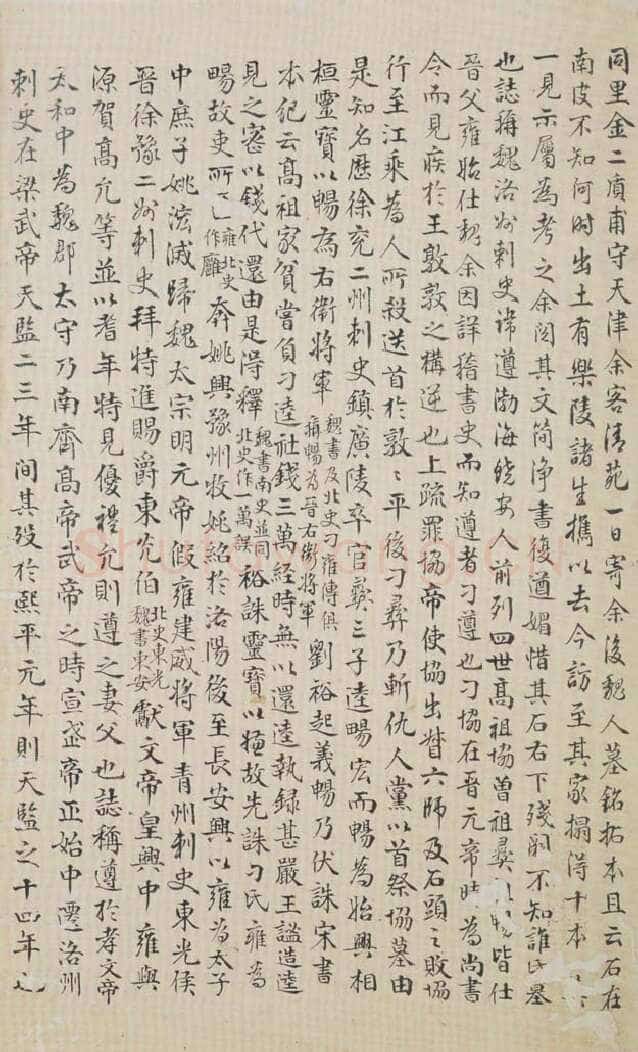 同里金二廣甫守天津余客清苑一日寄余後魏人墓銘拓本且云石在
南皮不知何时出土有樂陵諸生攜以去今訪至其家搨得十本〻〻
一見示屬為考之余閱其文简净書復遒媚惜其石右下残闕不知誰氏墓
也誌稱魏洛州刺史諱遵渤海饒安人前列四世高祖協曾祖彝皆仕
晉父雍始仕魏余因詳稽書史而知遵者刁遵也刁協在晉元帝时為尚書
令而見疾於王敦敦之構逆也上疏罪協帝使協出督六師及石頭之敗協
行至江乘為人所殺送首於敦〻平後刁彝乃斬仇人黨以首祭協墓由
是知名歷徐兖二州刺史鎮廣陵卒官彝三子逵暢宏而暢為始興相
桓靈寶以暢為右衛將軍魏書及北史刁雍傳俱稱暢為晉右衛將軍劉裕起義暢乃伏誅宋書
本纪云髙祖家貧嘗負刁逵社錢三萬經時無以還逵執録甚嚴王謐造逵
見之密以錢代還由是得釋魏書南史並同北史作一萬誤裕誅靈寶以嫌故先誅刁氏雍為
暢故吏所匿雍北史作廱奔姚興豫州牧姚紹於洛陽後至長安興以雍為太子
中庶子姚泓滅歸魏太宗明元帝假雍建威將軍青州刺史東光侯
晉徐豫二州刺史拜特進賜爵東光伯北史東光魏書東安獻文帝皇興中雍與
源賀髙允等並以耆年特見優禮允則遵之妻父也誌稱遵於孝文帝
太和中為魏郡太守乃南齊髙帝武帝之時宣武帝正始中遷洛州
刺史在梁武帝天監二三年间其殁於熙平元年則天監之十四年也